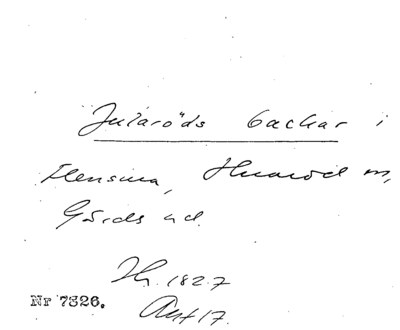 Jularöds backar i
Flensma, Huaröd m,
Gärds hd.
Th. 1827
Nr 7326. Ant 17.